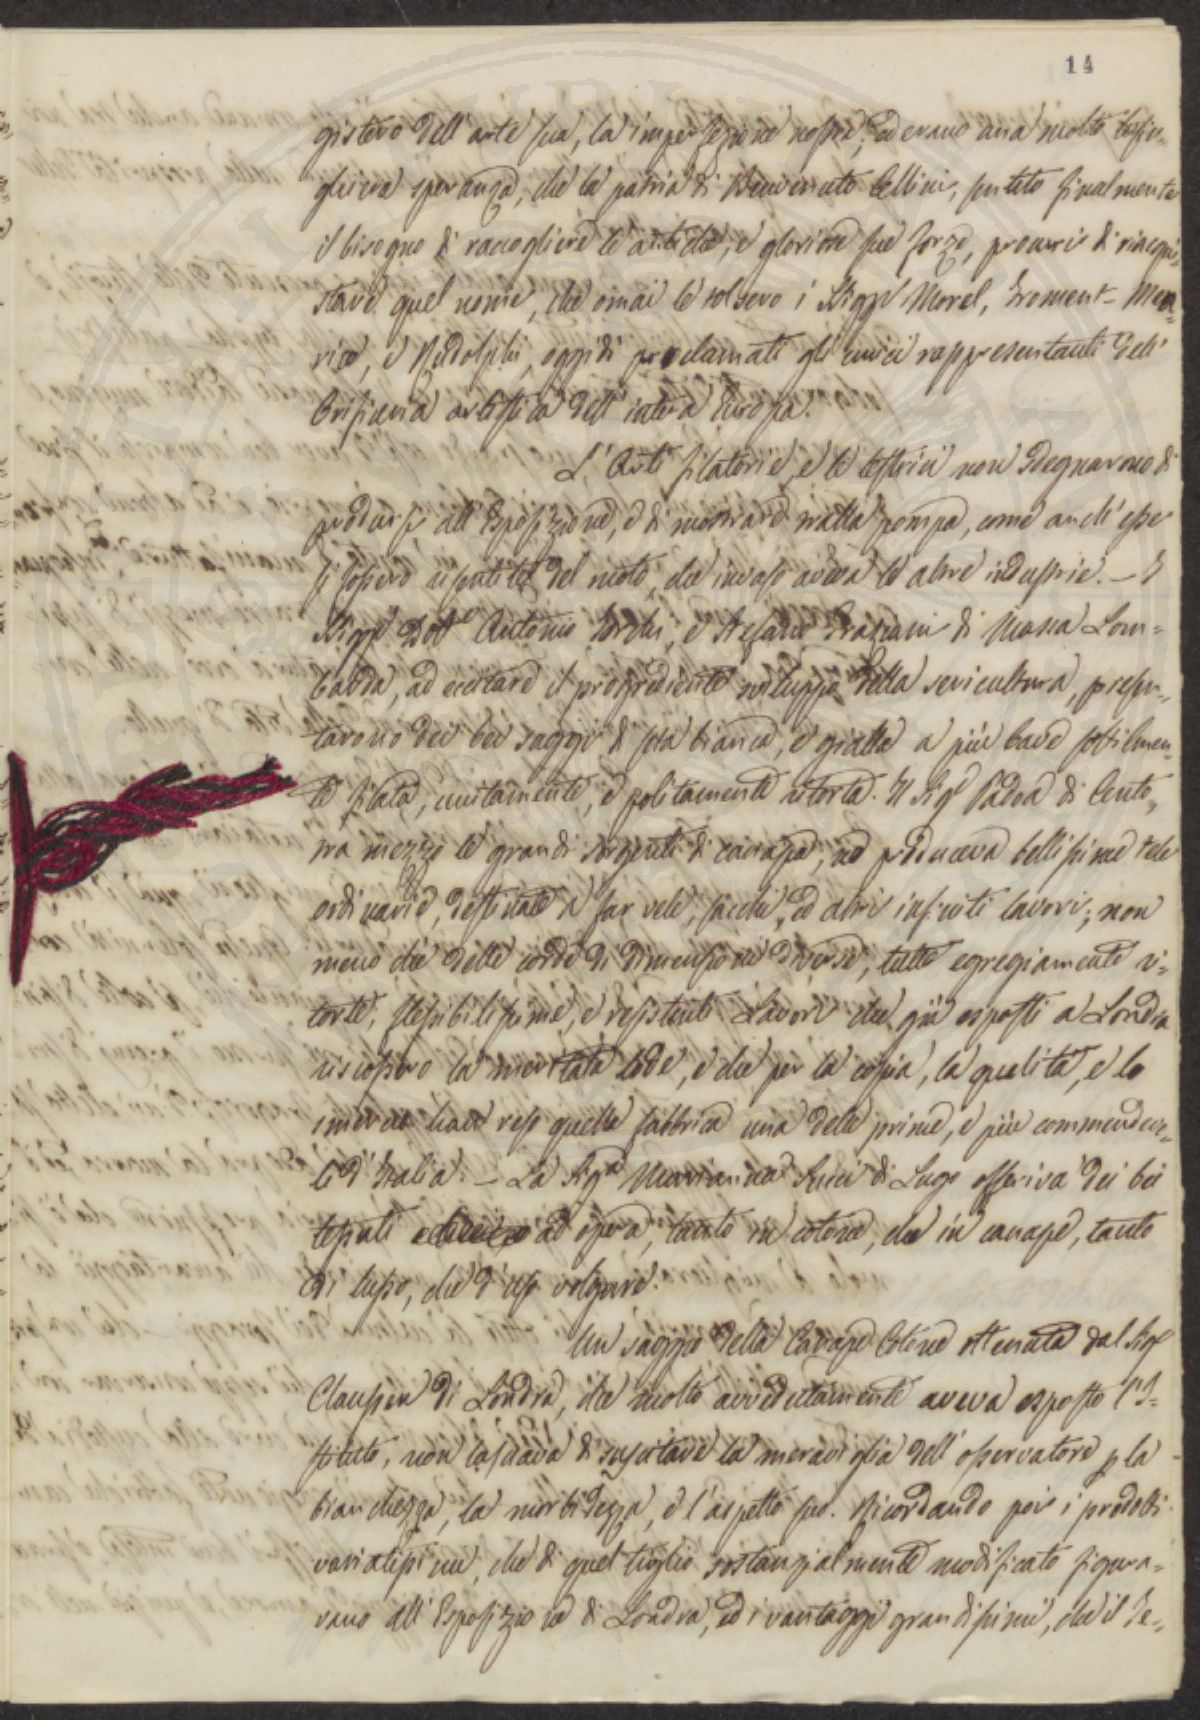 14
gistero dell'arte sua, la imperfezione nostra, ed erano una molto lusin-
ghiera speranza, che la patria di Benvenuto Cellini, sentito finalmente
il bisogno di raccogliere le antiche, e gloriose sue forze, procuri di riacqui-
stare quel nome, che omai le tolsero i Sigg.i Morel, Froment-Meu-
rice, e Rudolphi, oggidì proclamati gli unici rappresentanti dell'
Orificeria artistica dell'intera Europa.
L'Arti filatorie, e le testrici non sdegnarono di
prodursi all'Esposizione, e di mostrare nella pompa, come anch'esse
si fossero risentite del moto, che invaso aveva le altre industrie. — I
Sigg.i Dott. Antonio e Stefano Graziani di Massa Lom=
barda, ad accertare il progrediente sviluppo della sericultura, presen-
tarono dei bei saggi di seta bianca, e gialla a più bave sottilmen-
te filata, unitamente, e politamente ritorta. Il Sig.r Padoa di Cento,
tra mezzo le grandi sorgenti di canape, ne produceva bellissime tele
ordinarie, destinate a far vele, sacchi, ed altri infiniti lavori; non
meno che delle corde di dimensione diversa, tutte egregiamente ri=
torte, flessibilissime, e resistenti. Lavori che già esposti a Londra
riscossero la meritata lode, e che per la copia, la qualità, e lo
smercio hanno reso quella fabbrica una delle prime, e più commendevo-
li d'Italia. — La Sig.a Marianna Ricci di Lugo offeriva dei bei
tessuti ad opera, tanto in cotone, che in canape, tanto
di lusso, che d'uso volgare.
Un saggio della Canape Cotone ottenuta dal Sig.r
Claussen di Londra, che molto avvedutamente aveva esposto l'I-
stituto, non lasciava di suscitare la meraviglia dell'osservatore p la
bianchezza, la morbidezza, e l'aspetto suo. Ricordando poi i prodotti
variatissimi, che di quel tiglio sostanzialmente modificato figura-
vano all'Esposizione di Londra, ed i vantaggi grandissimi, che il Se-